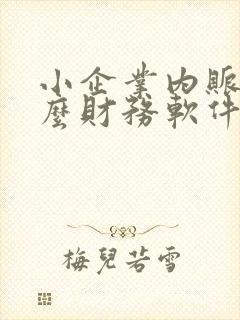 小企業內賬
麼財務軟件
梅兒若雪